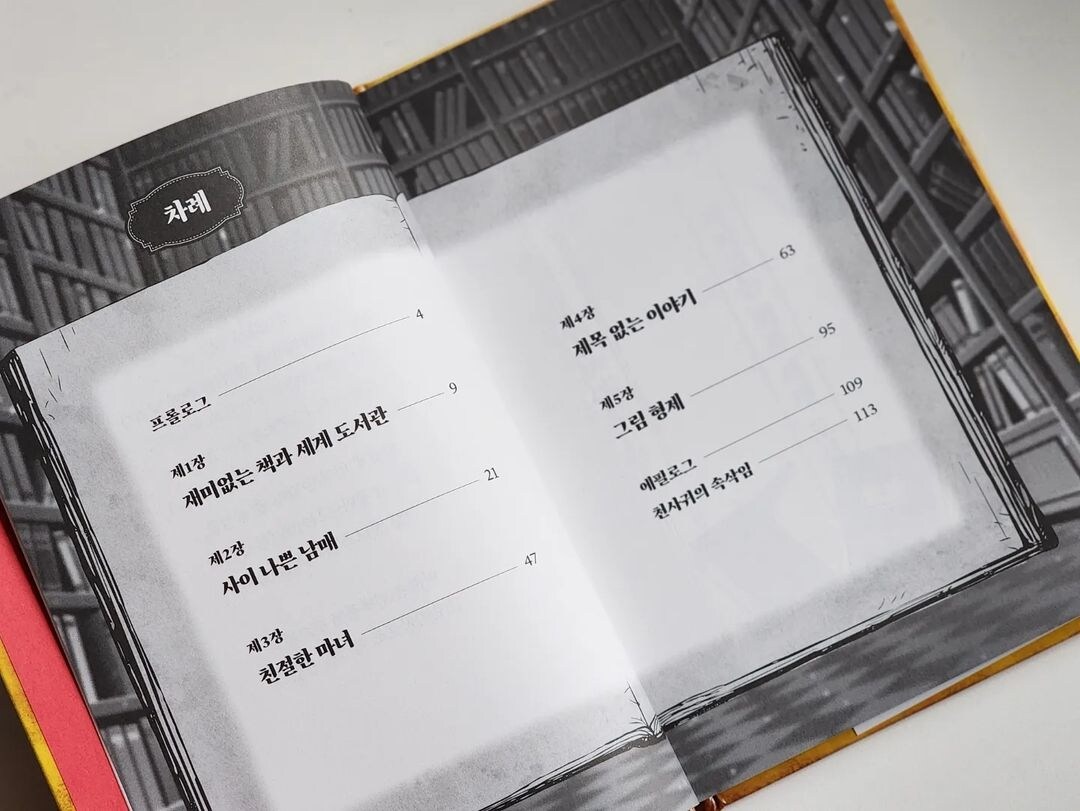 차례
프롤로그 4
제1장
재미없는 책과 세계 도서관 9
제2장
사이 나쁜 남매 21
제3장
친절한 마녀 47
제4장
제목 없는 이야기 63
제5장
그림 형제 95
에필로그 109
천사귀의 속삭임 113